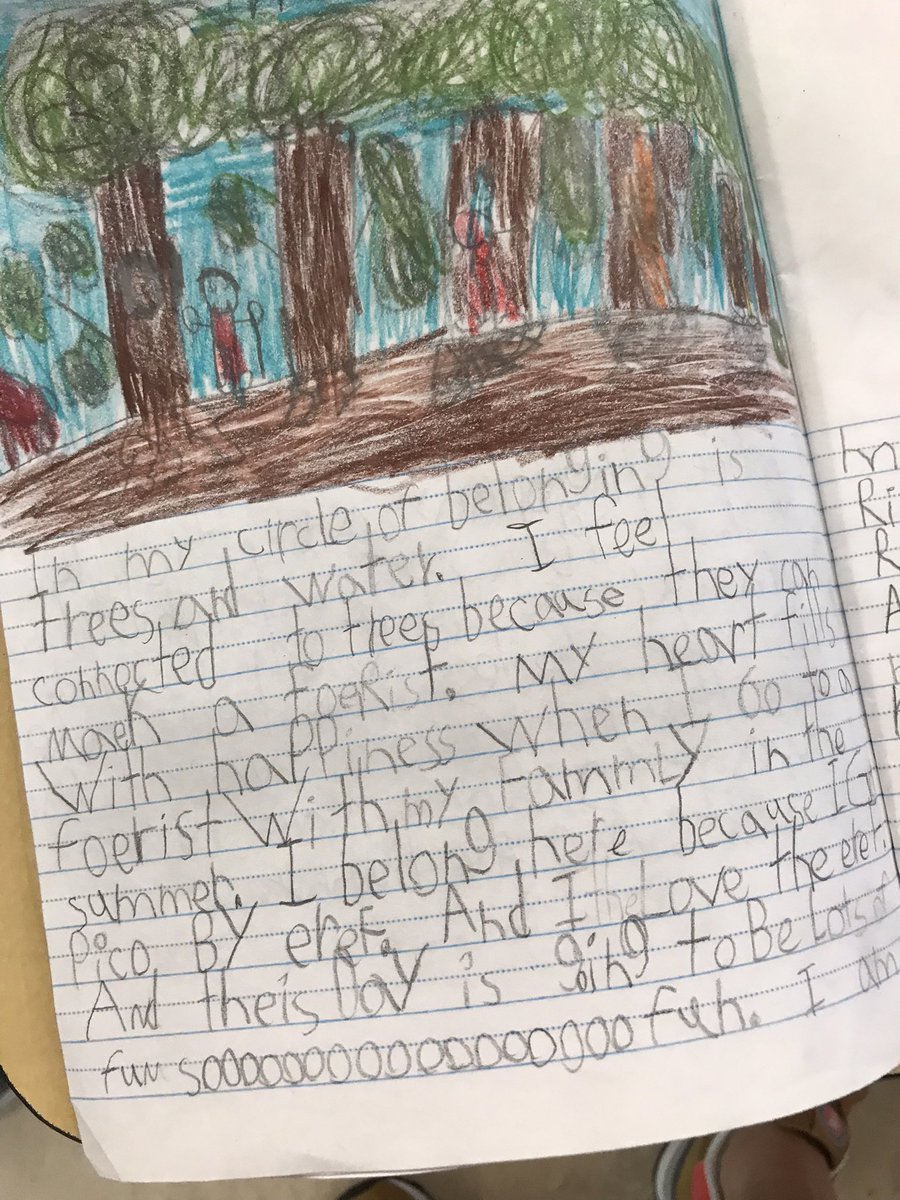 In my circle of belonging is
trees, and water. I feel
connected to trees because they can
maek a foerist. my heart fills
with happiness when I Go to a
foerist with my Fammly in the
summer. I belong here because I Col
Pico By eref. And I Love the eref.
And theis Day is going to Be Lots of
fun sooooooooooooooooo fun. I am
hn
Ri
R
A